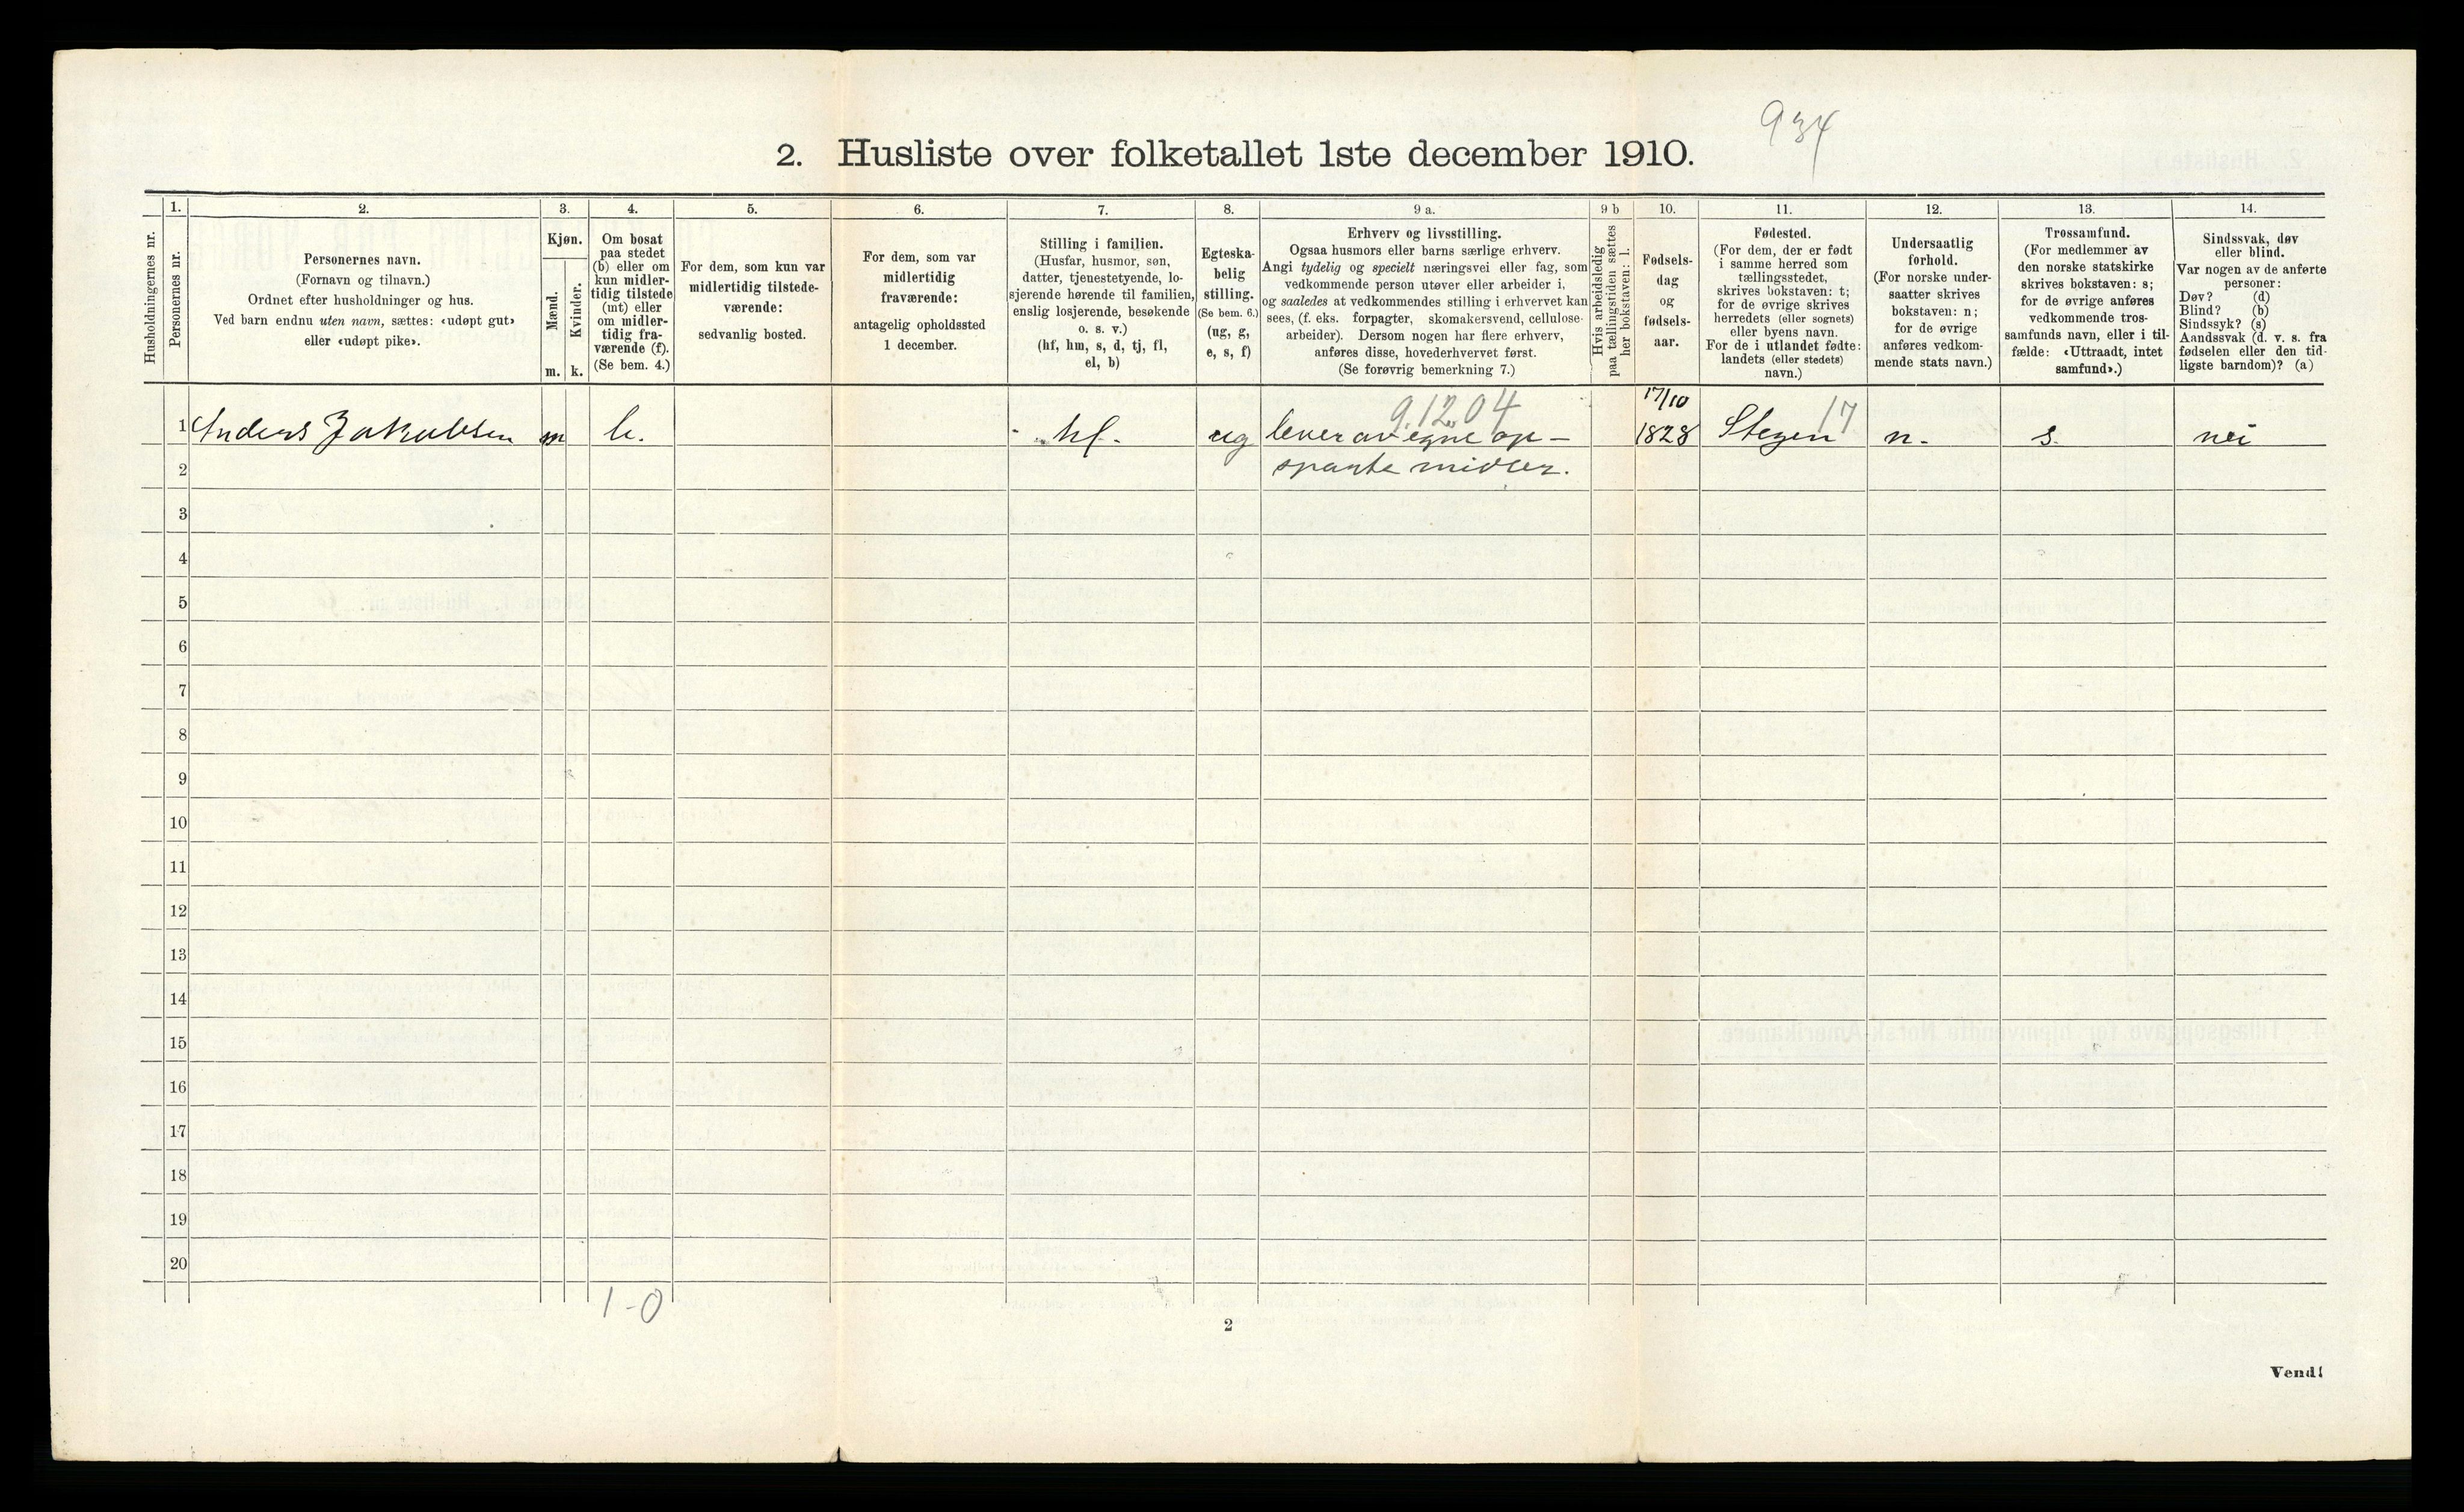 934
2. Husliste over folketallet 1ste december 1910.
Husholdningernes nr.
1.
Personernes nr.
2.
Personernes navn.
(Fornavn og tilnavn.)
Ordnet efter husholdninger og hus.
Ved barn endnu uten navn, sættes: «udøpt gut»
eller «udøpt pike».
3.
Kjøn.
Mænd.
Kvinder.
m. k.
4.
Om bosat
paa stedet
(b) eller om
kun midler-
tidig tilstede
(mt) eller
om midler-
tidig fra-
værende (f).
(Se bem. 4.)
5.
For dem, som kun var
midlertidig tilstede-
værende:
sedvanlig bosted.
6.
For dem, som var
midlertidig
fraværende:
antagelig opholdssted
1 december.
7.
Stilling i familien.
(Husfar, husmor, søn,
datter, tjenestetyende, lo-
sjerende hørende til familien,
enslig losjerende, besøkende
o. s. v.)
(hf, hm, s, d, tj, fl,
el, b)
8.
Egteska-
belig
stilling.
(Se bem. 6.)
(ug, g,
e, s, f)
9 a.
Erhverv og livsstilling.
Ogsaa husmors eller barns særlige erhverv.
Angi tydelig og specielt næringsvei eller fag, som
vedkommende person utøver eller arbeider i,
og saaledes at vedkommendes stilling i erhvervet kan
sees, (f. eks. forpagter, skomakersvend, cellulose-
arbeider). Dersom nogen har flere erhverv,
anføres disse, hovederhvervet først.
(Se forøvrig bemerkning 7.)
9 b
Hvis arbeidsledig
paa tællingstiden sættes
her bokstaven: l.
10.
Fødsels-
dag
og
fødsels-
aar.
11.
Fødested.
(For dem, der er født
i samme herred som
tællingsstedet,
skrives bokstaven: t;
for de øvrige skrives
herredets (eller sognets)
eller byens navn.
For de i utlandet fødte:
landets (eller stedets)
navn.)
12.
Undersaatlig
forhold.
(For norske under-
saatter skrives
bokstaven: n;
for de øvrige
anføres vedkom-
mende stats navn.)
13.
Trossamfund.
(For medlemmer av
den norske statskirke
skrives bokstaven: s;
for de øvrige anføres
vedkommende tros-
samfunds navn, eller i til-
fælde: «Uttraadt, intet
samfund».)
14.
Sindssvak, døv
eller blind.
Var nogen av de anførte
personer:
Døv? (d)
Blind? (b)
Sindssyk? (s)
Aandssvak (d. v. s. fra
fødselen eller den tid-
ligste barndom)? (a)
9.12.04 17/10 17
1 Anders Jakobsen m b. hf. ug lever av egne op- 1828 Stegen n. s. nei
2 sparte midler.
3
4
5
6
7
8
9
10
11
12
13
14
15
16
17
18
19
20
1-0
2
Vend!